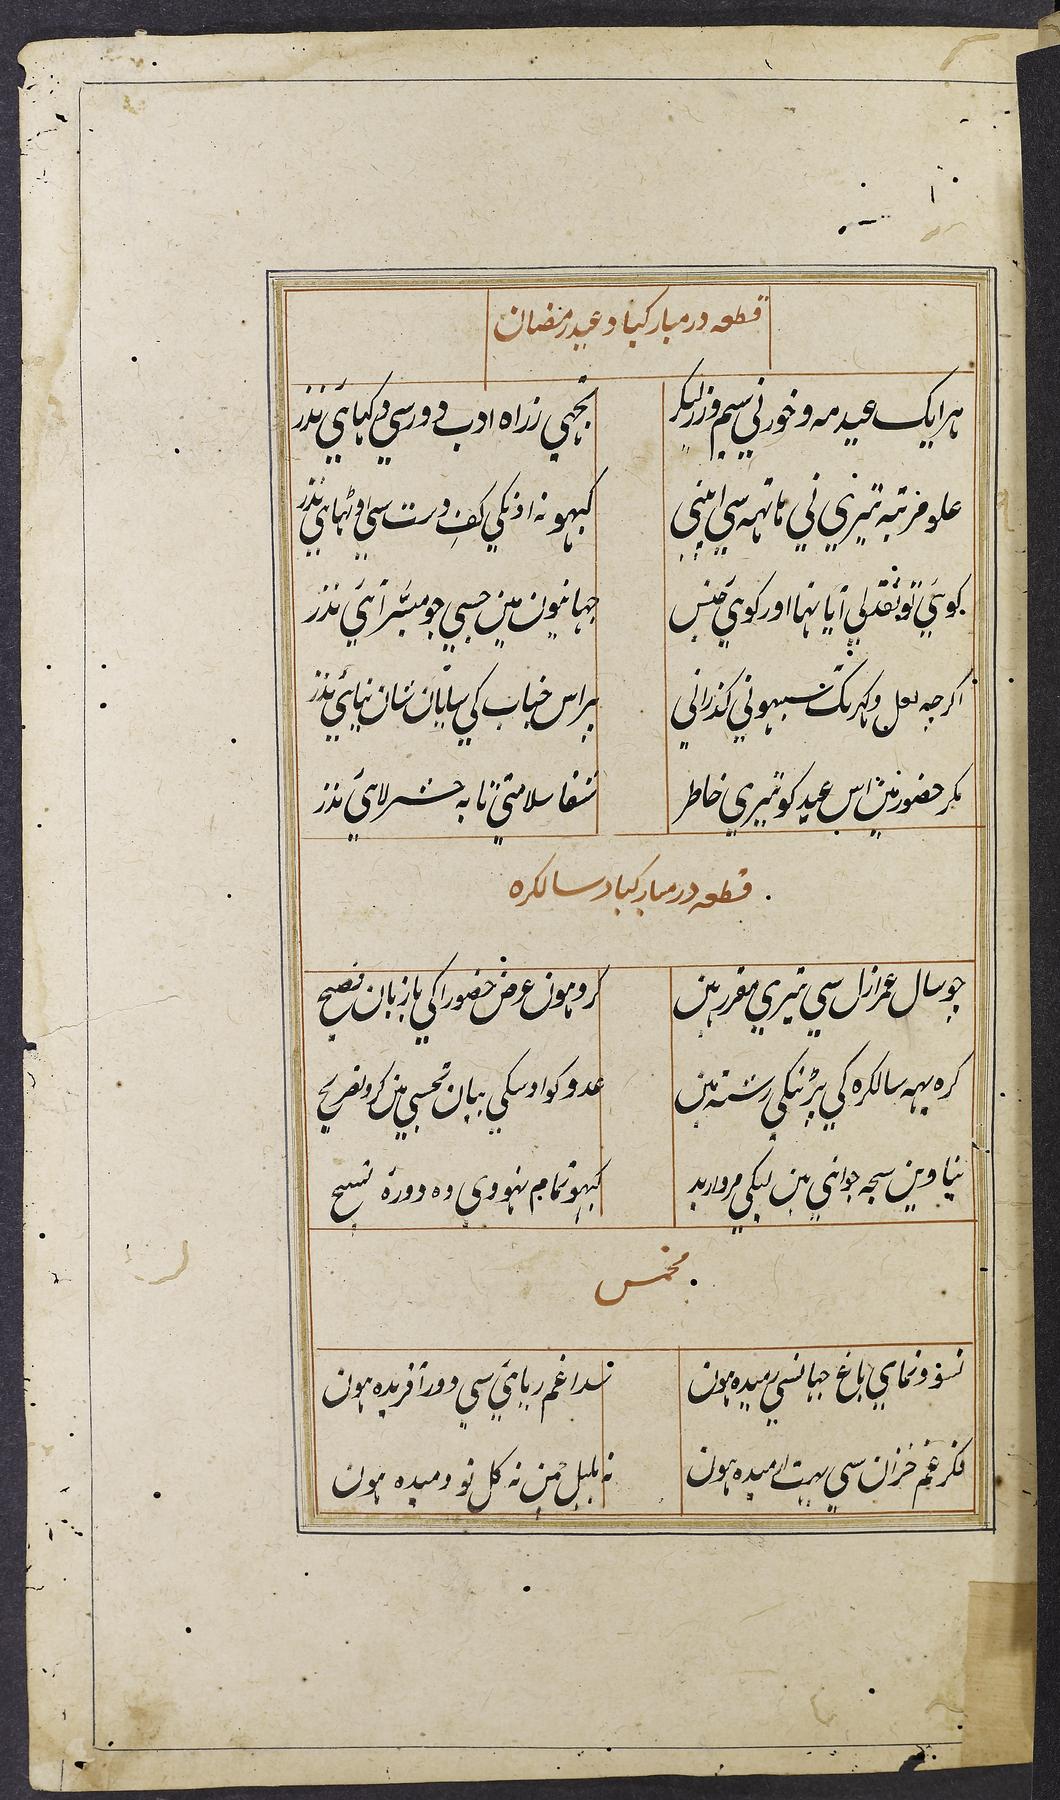 قطعه در مبارکباد عید رمضان
هر ایک عید مه و خورنی سیم و زر لیکر تجهی زراه ادب دورسی دکهایٔ نذر
علو مرتبه تیری نی هاتهه سی اپنی کبهو نه اونکی کف دست سی اوٹهایٔ نذر
کویٔ تو نقد لی آیا تها اور کویٔ جنس جهانیون مین جسی جو میسّر آیٔ نذر
اکرچه لعل و کهر تک سبهونی کذرانی پر اس جناب کی شایان شان نپایٔ نذر
مکر حضور مین اس عید کو تیری خاطر شفا سلامتیٔ تا به حشر لایٔ نذر
قطعه در مبارکباد سالکره
جو سال عمر ازل سی تیری مقرر هین کرو هون عرض حضور اکی با زبان فصیح
کره یهه سالکره کی پڑنکی رشته مین عدو کو اوسکی بیان تحسی مین کرو تصریح
بناوین سبحه جوانی مین لیکی مروارید کبهو تمام نهووی وه دورهٔ تسبیح
مخمس
نشو و نمای باغ جهانسی رمیده هون نداغم رهایٔ سی دور آفریده هون
فکر غم خزان سی بهت ارمیده هون نه بلبل چمن نه کل نو دمیده هون